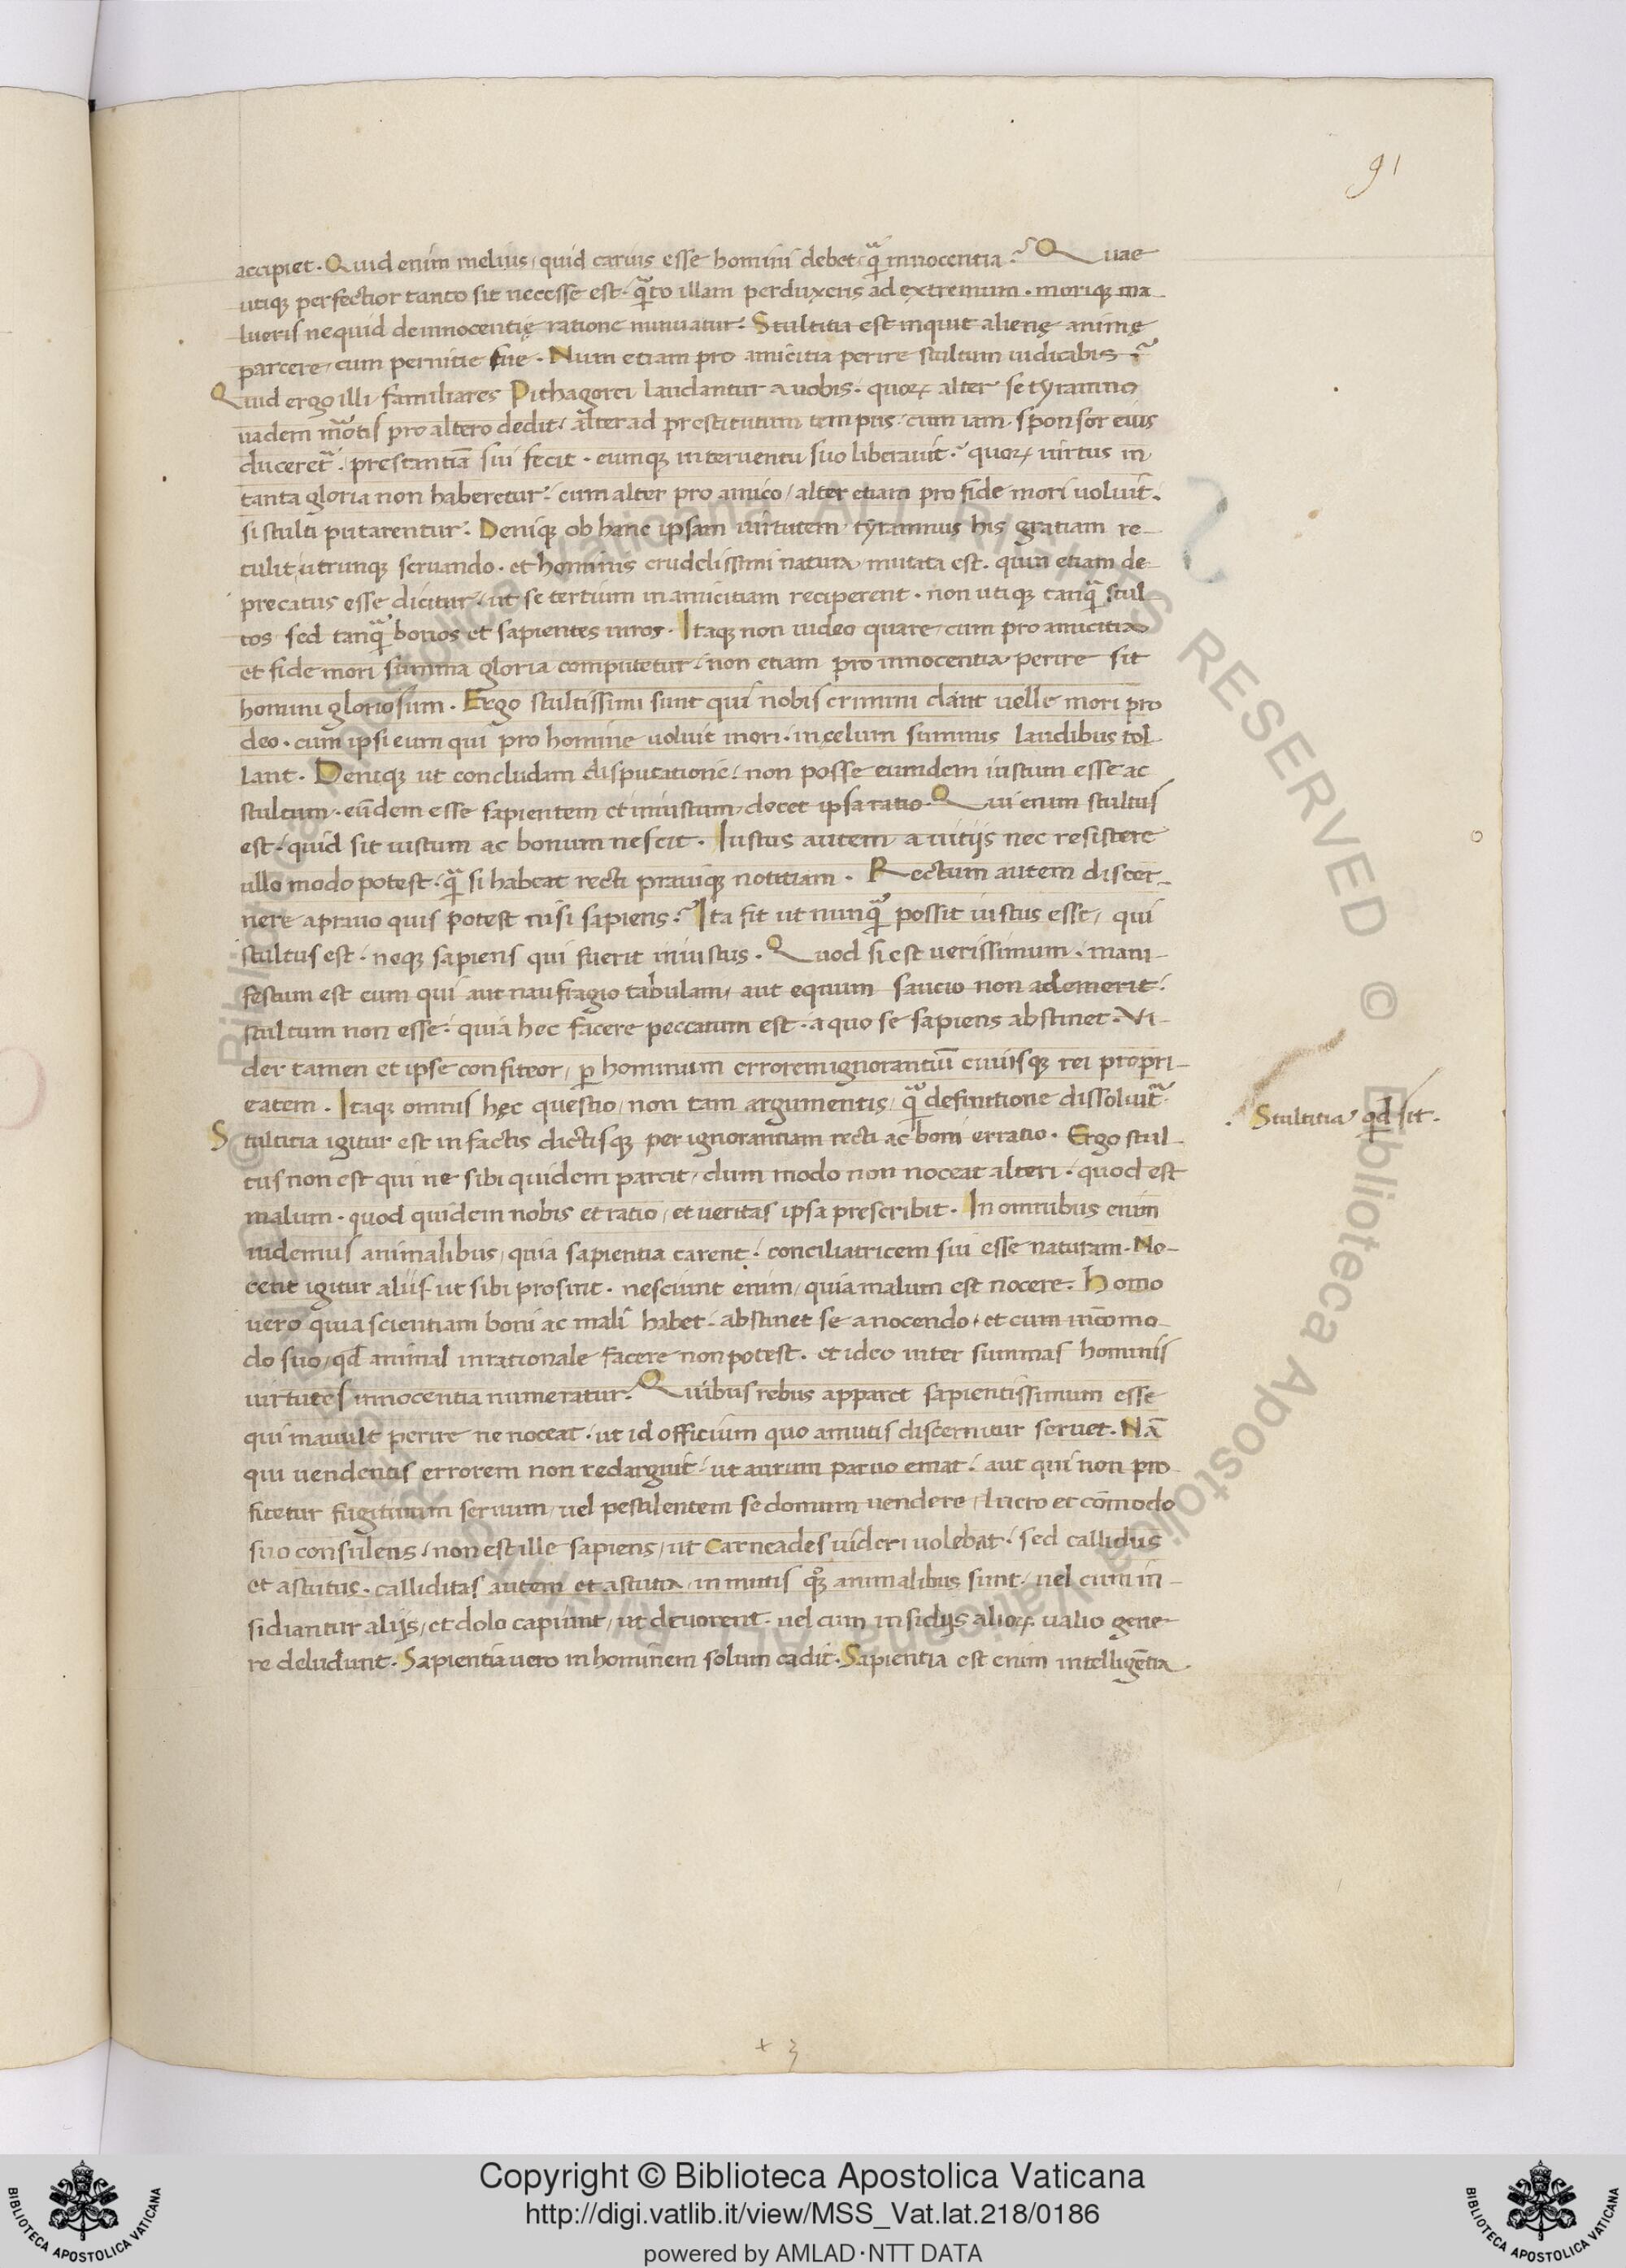 91
accipiet. Quid enim melius, quid carius esse homini debet, qᷓ innocentia? Quae
utiqꝫ perfectior tanto sit necesse est. qᷓto illam perduxeris ad extremum. moriqꝫ ma
lueris nequid de innocentię ratione minuatur. Stultitia est inquit alienę animę
parcere, cum pernitie suę. Num etiam pro amicitia perire stultum iudicabis?
Quid ergo illi familiares Pithagorei laudantur a uobis. quoꝝ alter se tyranno
uadem mᷓotis pro altero dedit, alter ad prestitutum tempus, cum iam sponsor eius
duceretᷓ, prestantiā sui fecit. eumqꝫ interuentu suo liberauit? quoꝝ uirtus in
tanta gloria non haberetur, cum alter pro amico, alter etiam pro fide mori uoluit,
si stulti putarentur. Deniqꝫ ob hanc ipsam uirtutem tyrannus his gratiam re-
tulit, utrunqꝫ seruando. et hominis crudelissimi natura mutata est. quin etiam de-
precatus esse dicitur, ut se tertium in amicitiam reciperent. non utiqꝫ tanqᷓ stul
tos sed tanqᷓ bonos et sapientes uiros. Itaqꝫ non uideo quare, cum pro amicitia
et fide mori summa gloria computetur, non etiam pro innocentia perire sit
homini gloriosum. Ergo stultissimi sunt qui nobis crimini dant uelle mori pro
deo. cum ipsi eum qui pro homine uoluit mori. in cęlum summis laudibus tol
lant. Deniqꝫ ut concludam disputationē, non posse eumdem iustum esse ac
stultum. eūdem esse sapientem et iniustum, docet ipsa ratio. Qui enim stultus
est, quid sit iustum ac bonum nescit. Iustus autem a uitijs nec resistere
ullo modo potest, qᷓ si habeat recti prauiqꝫ notitiam. Rectum autem discer-
nere a prauo quis potest nisi sapiens? Ita fit ut nunqᷓ possit iustus esse, qui
stultus est. neqꝫ sapiens qui fuerit iniustus. Quod si est uerissimum, mani-
festum est eum qui aut naufragio tabulam, aut equum saucio non ademerit,
stultum non esse, quia hec facere peccatum est. a quo se sapiens abstinet. Vi-
deri tamen et ipse confiteor, ꝑ hominum errorem ignorantiū cuiusqꝫ rei propri-
etatem. Itaqꝫ omnis hęc questio, non tam argumentis, qᷓ definitione dissoluitᷓ.
Stultitia igitur est in factis dictisqꝫ per ignorantiam recti ac boni erratio. Ergo stul-
tus non est qui ne sibi quidem parcit, dum modo non noceat alteri, quod est
malum. quod quidem nobis et ratio, et ueritas ipsa prescribit. In omnibus enim
uidemus animalibus, quia sapientia carent, conciliatricem sui esse naturam. No-
cent igitur aliis ut sibi prosint. nesciunt enim, quia malum est nocere. Homo
uero quia scientiam boni ac mali habet, abstinet se a nocendo, et cum incōmo-
do suo, qd animal inrationale facere non potest. et ideo inter summas hominis
uirtutes innocentia numeratur. Quibus rebus apparet sapientissimum esse
qui mauult perire ne noceat, ut id officium quo a mutis discernitur seruet. Nā
qui uendentis errorem non redarguit, ut aurum paruo emat, aut qui non pro
fitetur fugitiuum seruum, uel pestilentem se domum uendere, lucro et cōmodo
suo consulens, non est ille sapiens, ut Carneades uideri uolebat, sed callidus
et astutus. calliditas autem et astutia, in mutis qꝫ animalibus sunt, uel cum in-
sidiantur alijs, et dolo capiunt, ut deuorent. uel cum insidijs alioꝝ uario gene-
re deludunt. Sapientia uero in hominem solum cadit. Sapientia est enim intelligētia
Stultitia qd sit.
+ 3
Copyright © Biblioteca Apostolica Vaticana
http://digi.vatlib.it/view/MSS_Vat.lat.218/0186
powered by AMLAD·NTT DATA
BIBLIOTECA APOSTOLICA VATICANA
BIBLIOTECA APOSTOLICA VATICANA